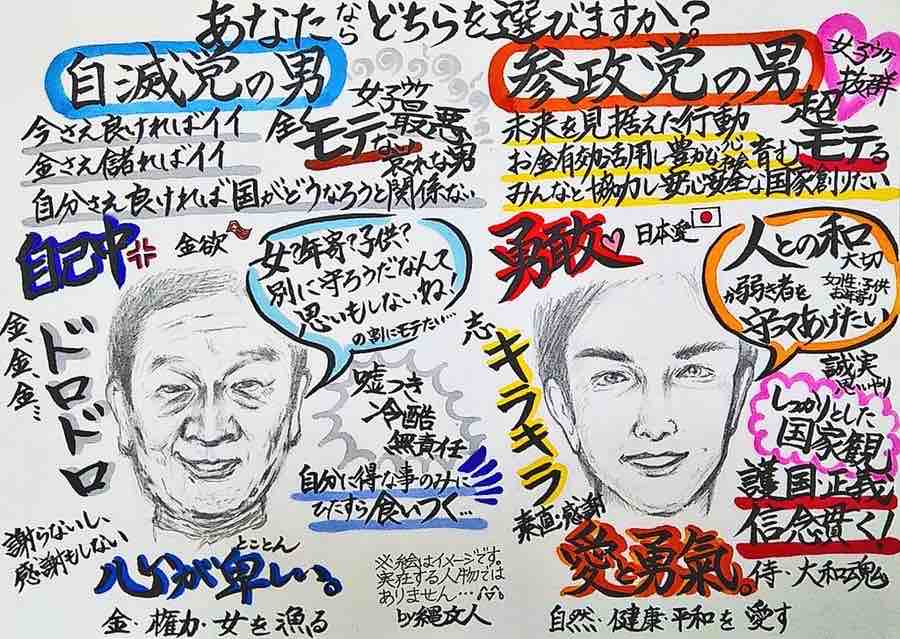 あなたならどちらを選びますか?
自滅党の男
今さえ良ければイイ
金さえ儲ればイイ
自分さえ良ければ国がどうなろうと関係ない
女子ウケ最悪
全くモテない
哀れな男
自己中
金欲
女?年寄?子供?
別に守ろうだなんて
思いもしないね!
の割にモテたい…
金、金、金…
ドロドロ
嘘つき
冷酷
無責任
自分に得な事のみに
ひたすら食いつく…
謝らないし、
感謝もしない
心が
とことん
卑しい。
金・権力・女を漁る
※絵はイメージです。
実在する人物では
ありません…
by縄文人
参政党の男
女子ウケ
抜群
超
モテる
未来を見据えた行動
お金有効活用し豊かな心育む
みんなと協力し安心安全な国家創りたい
勇敢
日本愛
人との和
大切
か弱き者を
女性・子供
お年寄り
守ってあげたい
志
キラキラ
誠実
思いやり
しっかりとした
国家観
護国・正義
信念貫く!
素直・感謝
愛と勇氣。
侍・大和魂
自然・健康・平和を愛す